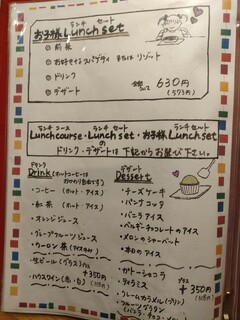 ランチ セット
お子様Lunch set
◎ 前菜
◎ お好きなスパゲティ または リゾット
◎ ドリンク
◎ デザート
630円
(573円)
ランチ コース ランチ セット ランチ セット
Lunchcourse・Lunch set・お子様Lunch set
の
ドリンク・デザートは 下記からお選び下さい。
ドリンク
Drink (ホットコーヒーは
おかわり自由です)
・コーヒー (ホット・アイス)
・紅茶 (ホット・アイス)
・オレンジジュース
・グレープフルーツジュース
・ウーロン茶 (アイスのみ)
・生ビール (グラス) プラス
+350円
・ハウスワイン (赤・白)
デザート
Dessert
・チーズケーキ
・パンナコッタ
・バニラアイス
・ベルギーチョコレートのアイス
・メロンのシャーベット
・本日のアイス
・ガトーショコラ プラス
・ティラミス +350円
・クレームカラメル (プリン)
・フルーツグラタン